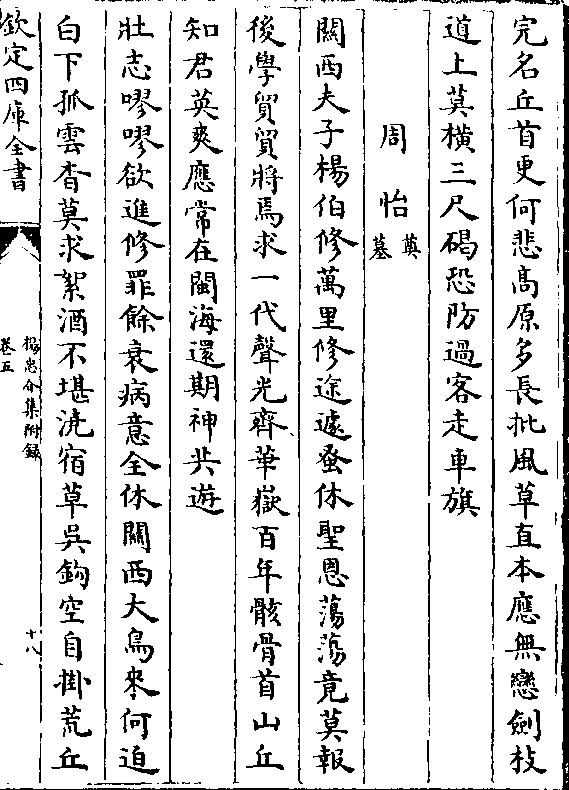 完名丘首更何悲高原多長批風草直本應無戀劍枝
道上莫橫三尺碣恐防過客走車旗
周怡 奠墓
關西夫子楊伯修萬里修途遽蚤休聖恩蕩蕩竟莫報
後學貿貿將焉求一代聲光齊華嶽百年骸骨首山丘
知君英爽應常在閩海還期神共遊
壯志嘐嘐欲進修罪餘衰病意全休關西大鳥來何迫
白下孤雲杳莫求絮酒不堪澆宿草吳鉤空自掛荒丘
欽定四庫全書
楊忠介集附錄
卷五
十八